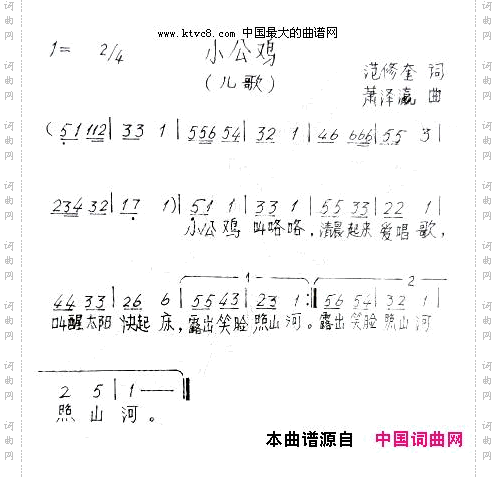 www.ktvc8.com 中国最大的曲谱网
1= 2/4 小公鸡
(儿歌)
范修奎 词
萧泽瀛 曲
(51 112 | 33 1 | 556 54 | 32 1 | 46 666 | 55 3 |
234 32 | 17 1) | 51 1 | 33 1 | 55 33 | 22 1 |
小公鸡 叫咯咯，清晨起来 爱唱歌，
1 2
44 33 | 26 6 | 55 43 | 23 1 :‖ 56 54 | 32 1 |
叫醒太阳 快起床，露出笑脸 照山河。露出笑脸 照山河
2 5 | 1 — ‖
照 山 河。
本曲谱源自 中国词曲网
词曲网
词曲网
词曲网
词曲网
词曲网
词曲网
词曲网
词曲网